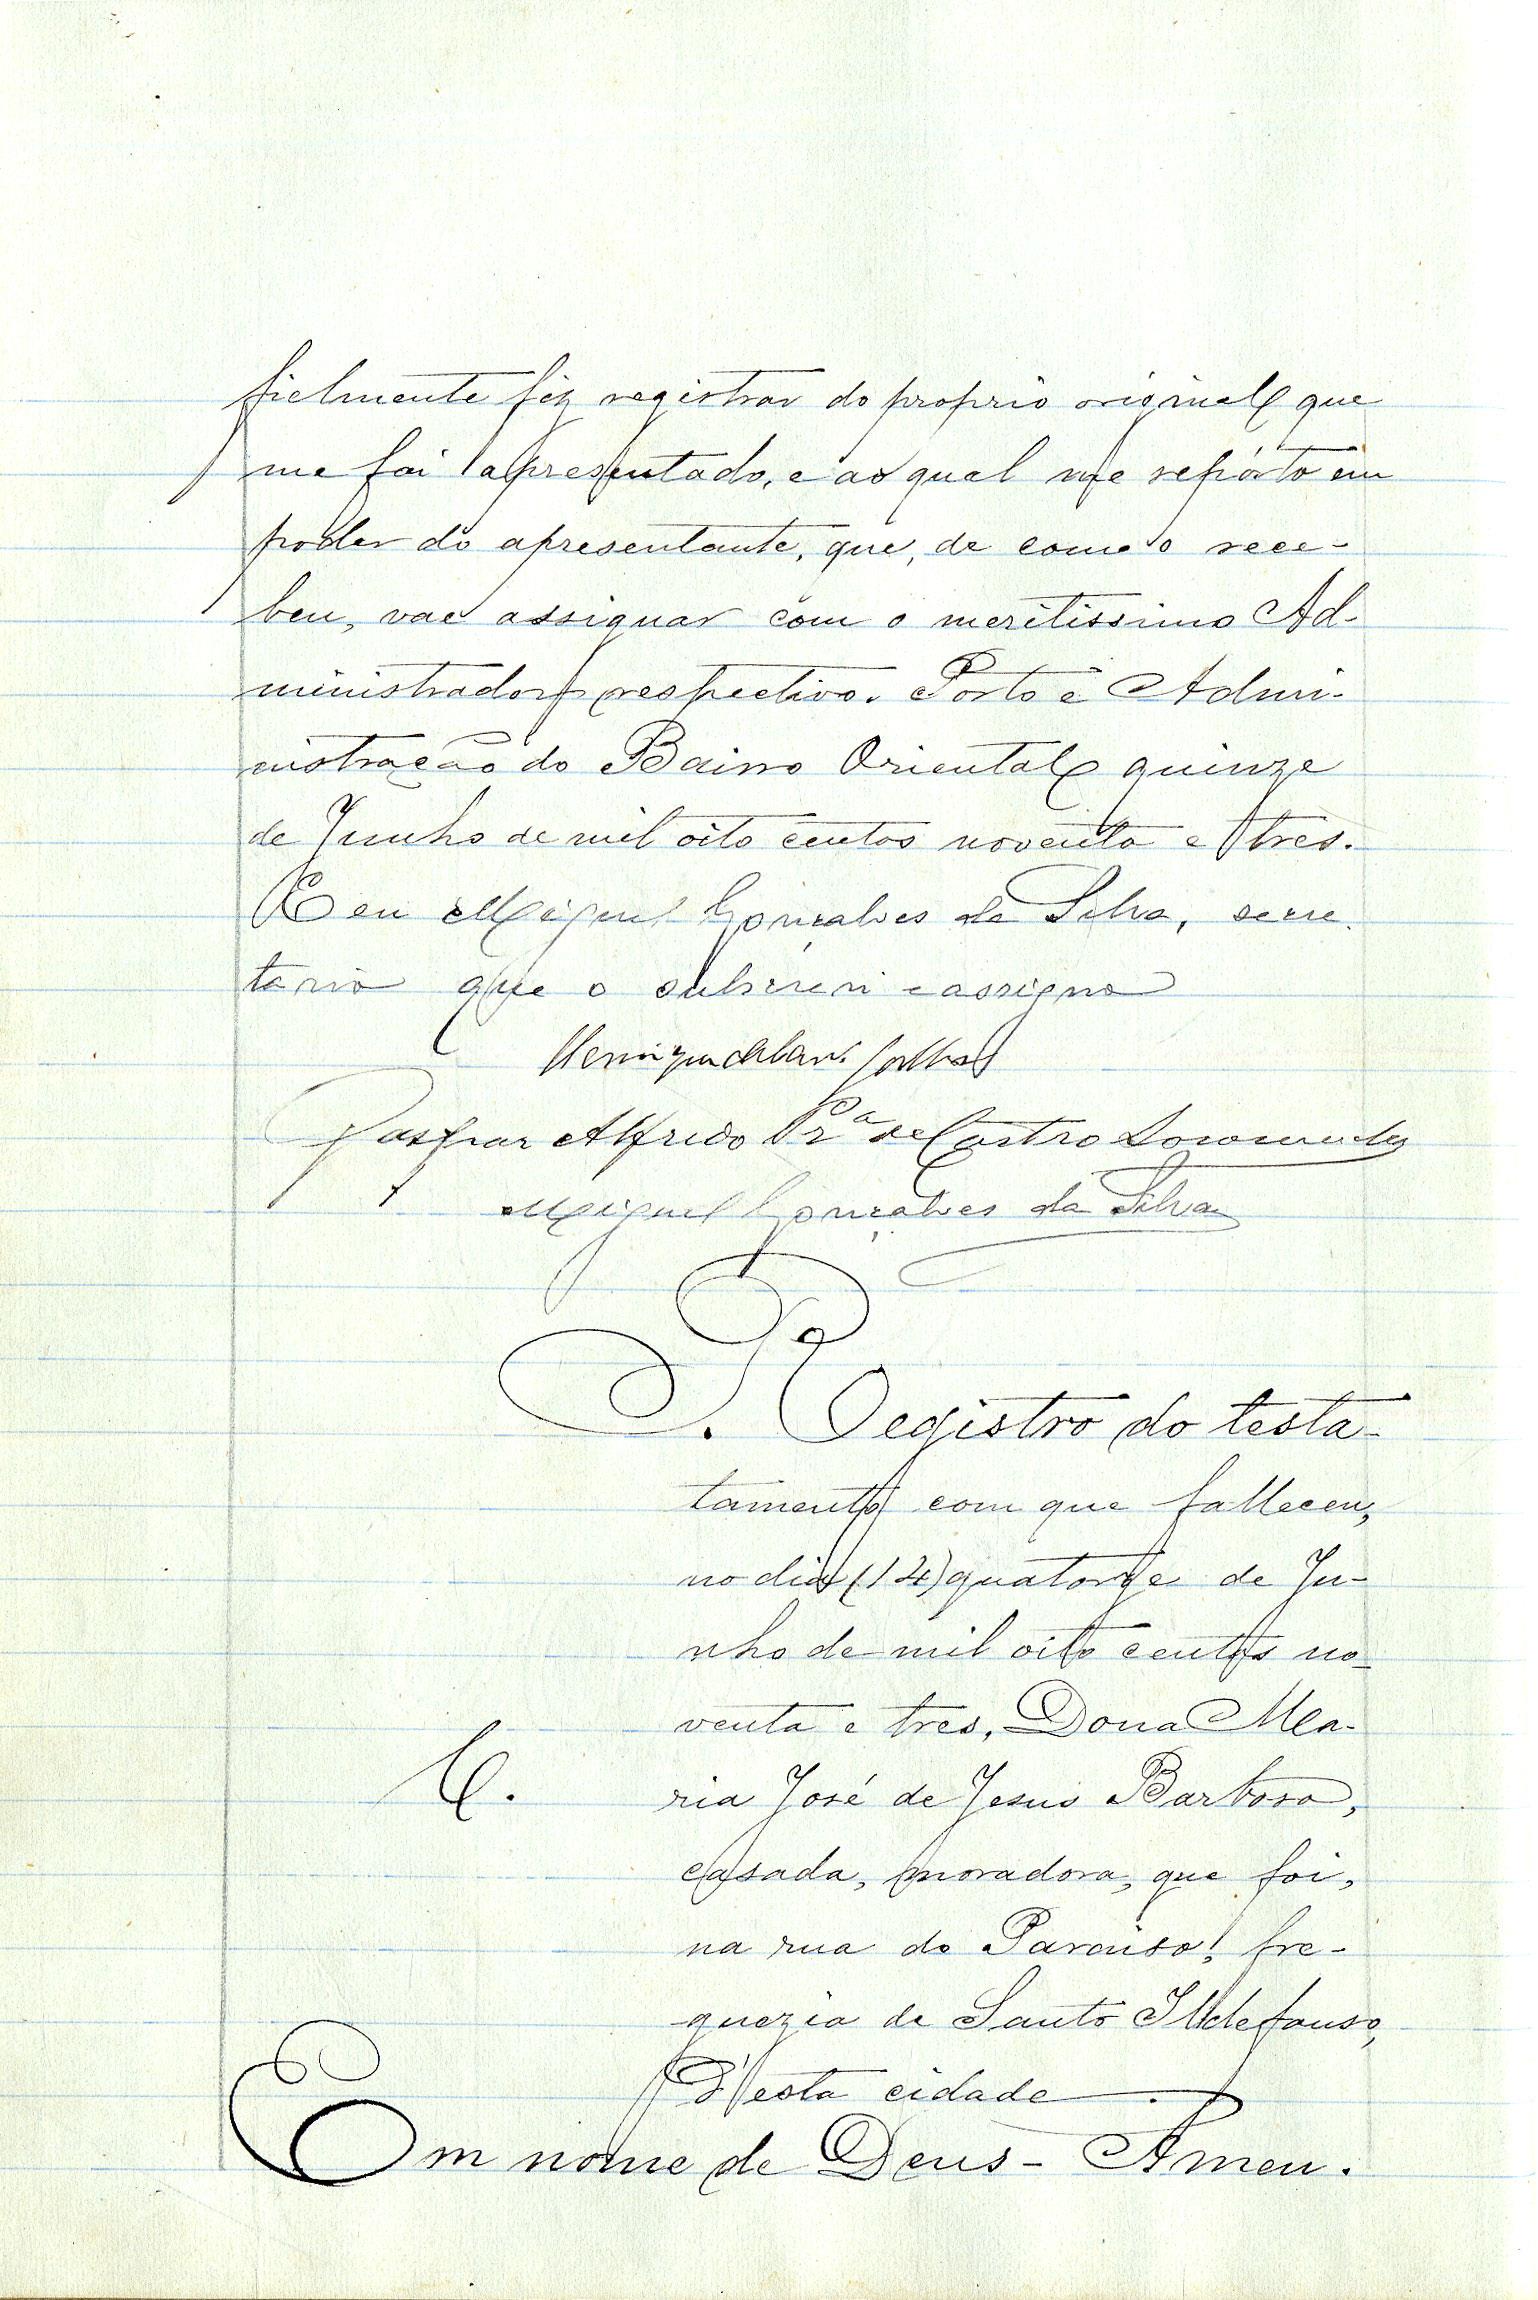 fielmente fiz registrar do proprio original que
me foi apresentado, e ao qual me repórto em
poder do apresentante, que, de como o rece-
beu, vae assignar com o meritissimo Ad-
ministrador respectivo. Porto e Admi-
nistração do Bairro Oriental quinze
de Junho de mil oito centos noventa e tres.
E eu Miguel Gonçalves da Silva, secre-
tario que o subscrevi e assigno
Gaspar Alfredo Pra de Castro
Miguel Gonçalves da Silva
Registro do testa-
tamento com que falleceu,
no dia (14) quatorze de Ju-
nho de mil oito centos no-
venta e tres, Dona Ma-
C. ria José de Jesus Barbosa,
casada, moradora, que foi,
na rua do Paraiso, fre-
guezia de Santo Ildefonso,
d'esta cidade.
Em nome de Deus - Amen.